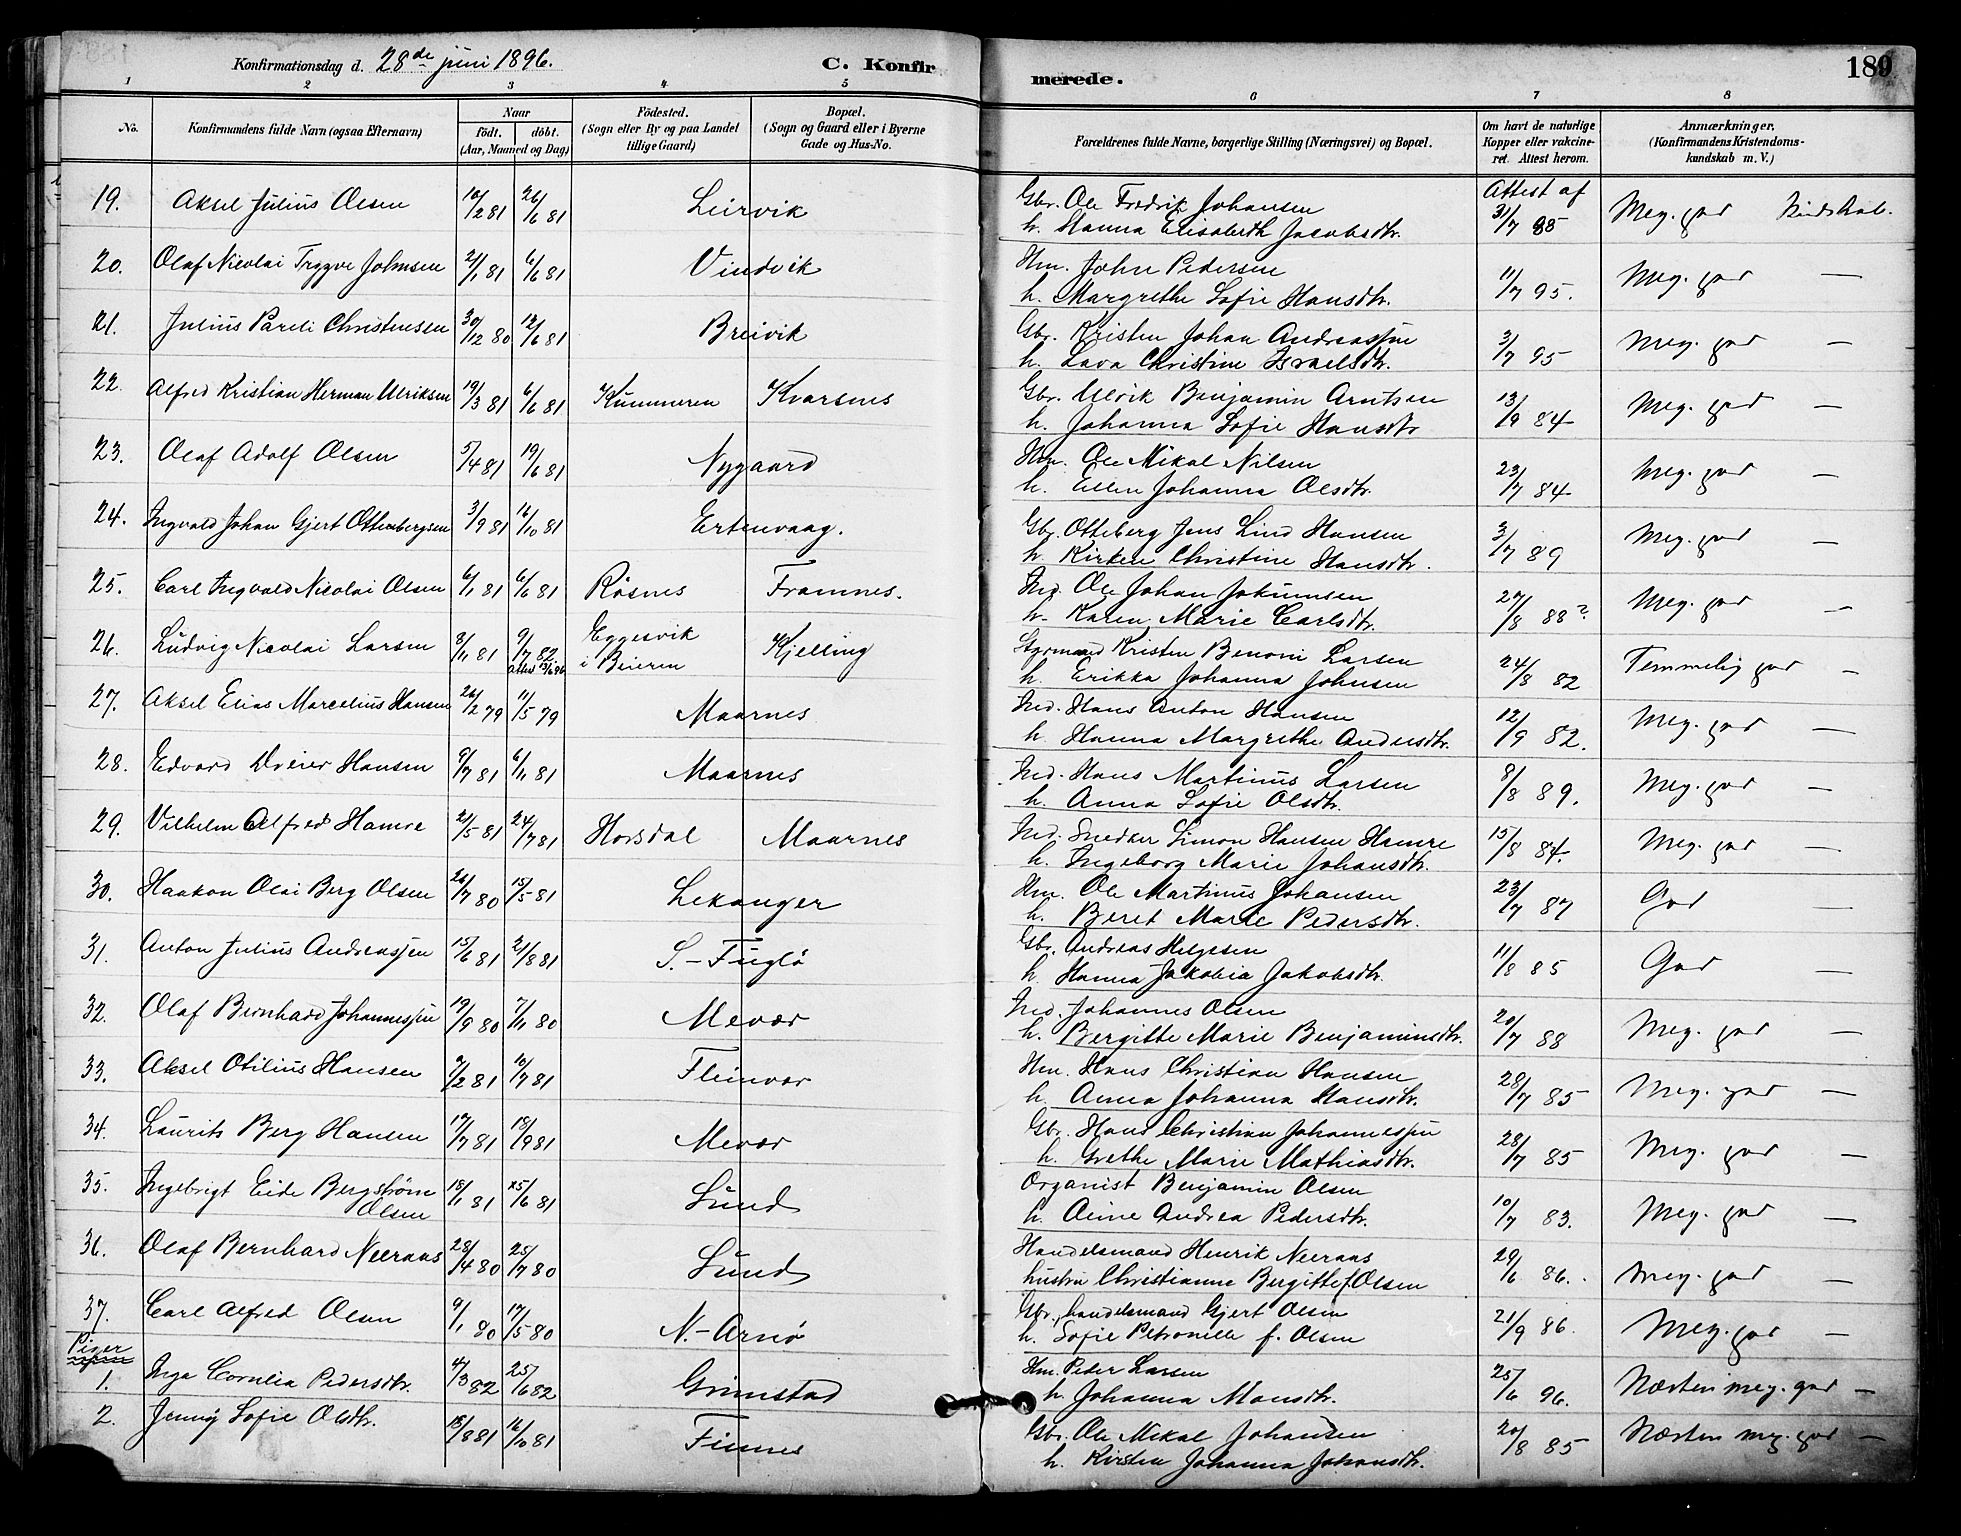 Konfirmationsdag d. 28de juni 1896.
C. Konfirmerede.
189
1 2 3 4 5 6 7 8
No.
Konfirmandens fulde Navn (ogsaa Efternavn)
Naar
födt. döbt.
(Aar, Maaned og Dag)
Födested.
(Sogn eller By og paa Landet
tillige Gaard)
Bopæl.
(Sogn og Gaard eller i Byerne
Gade og Hus-No.
Forældrenes fulde Navne, borgerlige Stilling (Næringsvei) og Bopæl.
Om havt de naturlige
Kopper eller vakcine-
ret. Attest herom.
Anmærkninger.
(Konfirmandens Kristendoms-
kundskab m. V.)
19. Aksel Julius Olsen 10/2 81 26/6 81 Leirvik Gbr. Ole Fredrik Johansen Attest af
h. Hanna Elisabeth Jacobsdtr. 31/7 85 Meg. god Kundskab.
20. Olaf Nicolai Trygve Johnsen 21/1 81 6/6 81 Vindvik Hm. John Pedersen
h. Margrethe Sofie Hansdtr. 11/7 95. Meg. god —
21. Julius Pareli Christensen 30/12 80 12/6 81 Breivik Gbr. Kristen Johan Andreassen
h. Lava Christine Israelsdtr. 3/7 95 Meg. god —
22. Alfred Kristian Herman Ulriksen 19/3 81 6/6 81 Kummeren Kvarsnes Gbr. Ulrik Benjamin Arntsen
h. Johanna Sofie Hansdtr 13/9 84 Meg. god —
23. Olaf Adolf Olsen 5/4 81 19/6 81 Nygaard Hm. Ole Mikal Nilsen
h. Ellen Johanna Olsdtr. 23/7 84 Meg. god —
24. Ingvald Johan Gjert Ottenbergsen 3/9 81 16/10 81 Ertenvaag. Gbr. Otteberg Jens Lind Hansen
h. Kirken Christine Hansdtr. 3/7 89 Meg. god —
25. Carl Ingvald Nicolai Olsen 6/1 81 6/6 81 Røsnes Framnes. Ind. Ole Johan Jokumsen
h. Karen Marie Carlsdtr. 27/8 88? Meg. god —
26. Ludvig Nicolai Larsen 8/11 81 9/7 82 Eggesvik
i Beieren Kjelling Styrmand Kristen Benoni Larsen
h. Erikka Johanna Johnsen 24/8 82 Temmelig god —
27. Aksel Elias Marcelius Hansen 26/2 79 11/5 79 Maarnes Ind. Hans Anton Hansen
h. Hanna Margrethe Andersdtr. 12/9 82. Meg. god —
28. Edvard Dreier Hansen 9/7 81 6/11 81 Maarnes Ind. Hans Martinus Larsen
h. Anna Sofie Olsdtr. 8/8 89. Meg. god —
29. Vilhelm Alfred Hamre 21/5 81 24/7 81 Horsdal Maarnes Ind. Snedker Simon Hansen Hamre
h. Ingeborg Marie Johansdtr. 15/8 84. Meg. god —
30. Haakon Olai Berg Olsen 26/7 80 15/5 81 Lekanger Hm. Ole Martinus Johansen
h. Beret Marie Pedersdtr. 23/7 87 God —
31. Anton Julius Andreassen 15/6 81 21/8 81 S.-Fuglø Gbr. Andreas Helgesen
h. Hanna Jakobia Jakobsdtr. 11/8 85 God —
32. Olaf Bernhard Johannessen 19/9 80 7/11 80 Mevær Ind. Johannes Olsen
h. Bergitte Marie Benjaminsdtr. 20/7 88 Meg. god —
33. Aksel Otilius Hansen 9/2 81 10/7 81 Fleinvær Hm. Hans Christian Hansen
h. Anna Johanna Hansdtr. 28/7 85 Meg. god —
34. Laurits Berg Hansen 17/7 81 18/9 81 Mevær Gbr. Hans Christian Johannessen
h. Grethe Marie Mathiasdtr. 28/7 85 Meg. god —
35. Ingebrigt Eide Bergstrøm
Olsen 18/1 81 25/6 81 Lund Organist Benjamin Olsen
h. Aine Andrea Pedersdtr. 10/7 83. Meg. god —
36. Olaf Bernhard Neeraas 28/4 80 25/7 80 Lund Handelsmand Henrik Neeraas
hustru Christianne Bergitte f. Olsen 29/6 86. Meg. god —
37. Carl Alfred Olsen 9/1 80 17/5 80 N.-Arnø Gbr., handelsmand Gjert Olsen
h. Sofie Petronelle f. Olsen 21/9 86. Meg. god —
Piger
1. Inga Cornelia Pedersdtr. 4/3 82 25/6 82 Grimstad Hm. Peder Larsen
h. Johanna Monsdtr. 25/6 96. Næsten meg. god —
2. Jenny Sofie Olsdtr. 18/8 81 16/10 81 Finnes Gbr. Ole Mikal Johansen
h. Kirsten Johanna Johansdtr. 20/8 85 Næsten meg. god —